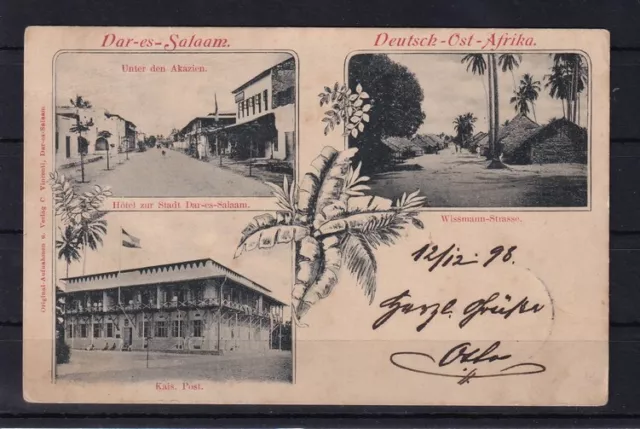 Dar-es-Salaam.
Deutsch-Ost-Afrika.
Unter den Akazien.
Hôtel zur Stadt Dar-es-Salaam.
Wissmann-Strasse.
Kais. Post.
Original-Aufnahmen u. Verlag C. Vincenti, Dar-es-Salaam.
12/12 98.
Herzl. Grüße
Otto